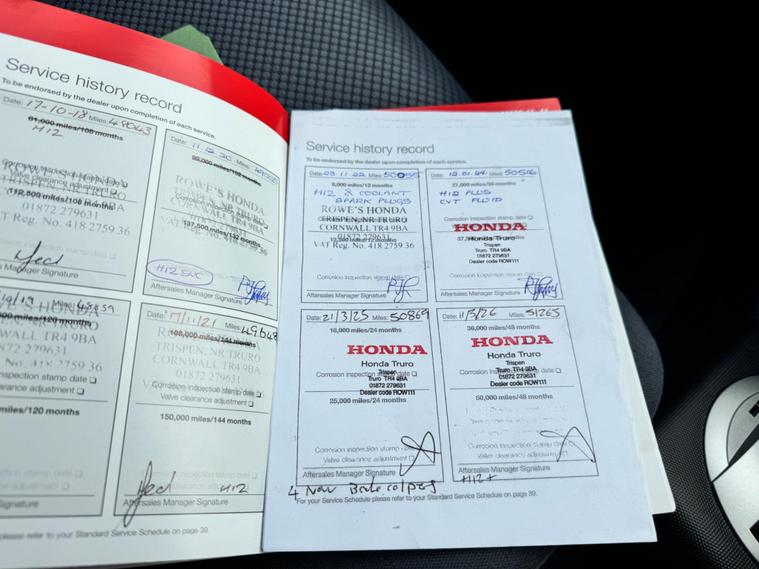 Service history record
To be endorsed by the dealer upon completion of each service.
Date: 17-10-18 Miles: 48043
81,000 miles/108 months
H12
TRISPEN, NR TRURO
112,500 miles/108 months
01872 279631
VAT Reg. No. 418 2759 36
Aftersales Manager Signature
Date: 11.12.20 Miles:
99,000 miles/132 months
ROWE'S HONDA
TRISPEN, NR TRURO
CORNWALL TR4 9BA
137,500 miles/132 months
01872 279631
VAT Reg. No. 418 2759 36
H12 SVC
Aftersales Manager Signature
000 miles/120 months
miles/120 months
stamp date
clearance adjustment
Manager Signature
Date: 17/11/21 Miles: 49648
108,000 miles/144 months
TRISPEN, NR TRURO
CORNWALL TR4 9BA
01872 279631
Corrosion inspection stamp date
Valve clearance adjustment
150,000 miles/144 months
H12
Aftersales Manager Signature
please refer to your Standard Service Schedule on page 39.
Service history record
To be endorsed by the dealer upon completion of each service.
Date: 23.11.22 Miles:
9,000 miles/12 months
H12 & COOLANT
SPARK PLUGS
ROWE'S HONDA
TRISPEN, NR TRURO
CORNWALL TR4 9BA
01872 279631
VAT Reg. No. 418 2759 36
Corrosion inspection stamp date
Aftersales Manager Signature
Date: 12.01.24 Miles: 50506
27,000 miles/36 months
H12 PLUS
CVT FLUID
Corrosion inspection stamp date
HONDA
Honda Truro
Trispen
Truro TR4 9BA
01872 279631
Dealer code ROW111
Aftersales Manager Signature
Date: 21/3/25 Miles: 50869
18,000 miles/24 months
HONDA
Honda Truro
Trispen
Truro TR4 9BA
01872 279631
Dealer code ROW111
25,000 miles/24 months
Corrosion inspection stamp
Valve clearance adjustment
Aftersales Manager Signature
Date: 11/3/26 Miles: 51265
36,000 miles/48 months
HONDA
Honda Truro
Trispen
Truro TR4 9BA
01872 279631
Dealer code ROW111
50,000 miles/48 months
Corrosion inspection stamp date
Valve clearance adjustment
Aftersales Manager Signature
H12+
4 New
For your Service Schedule please refer to your Standard Service Schedule on page 39.